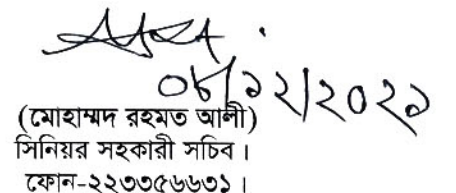 ০৮/১২/২০২১
(মোহাম্মদ রহমত আলী)
সিনিয়র সহকারী সচিব।
ফোন-২২৩৩৫৬৬৩১।